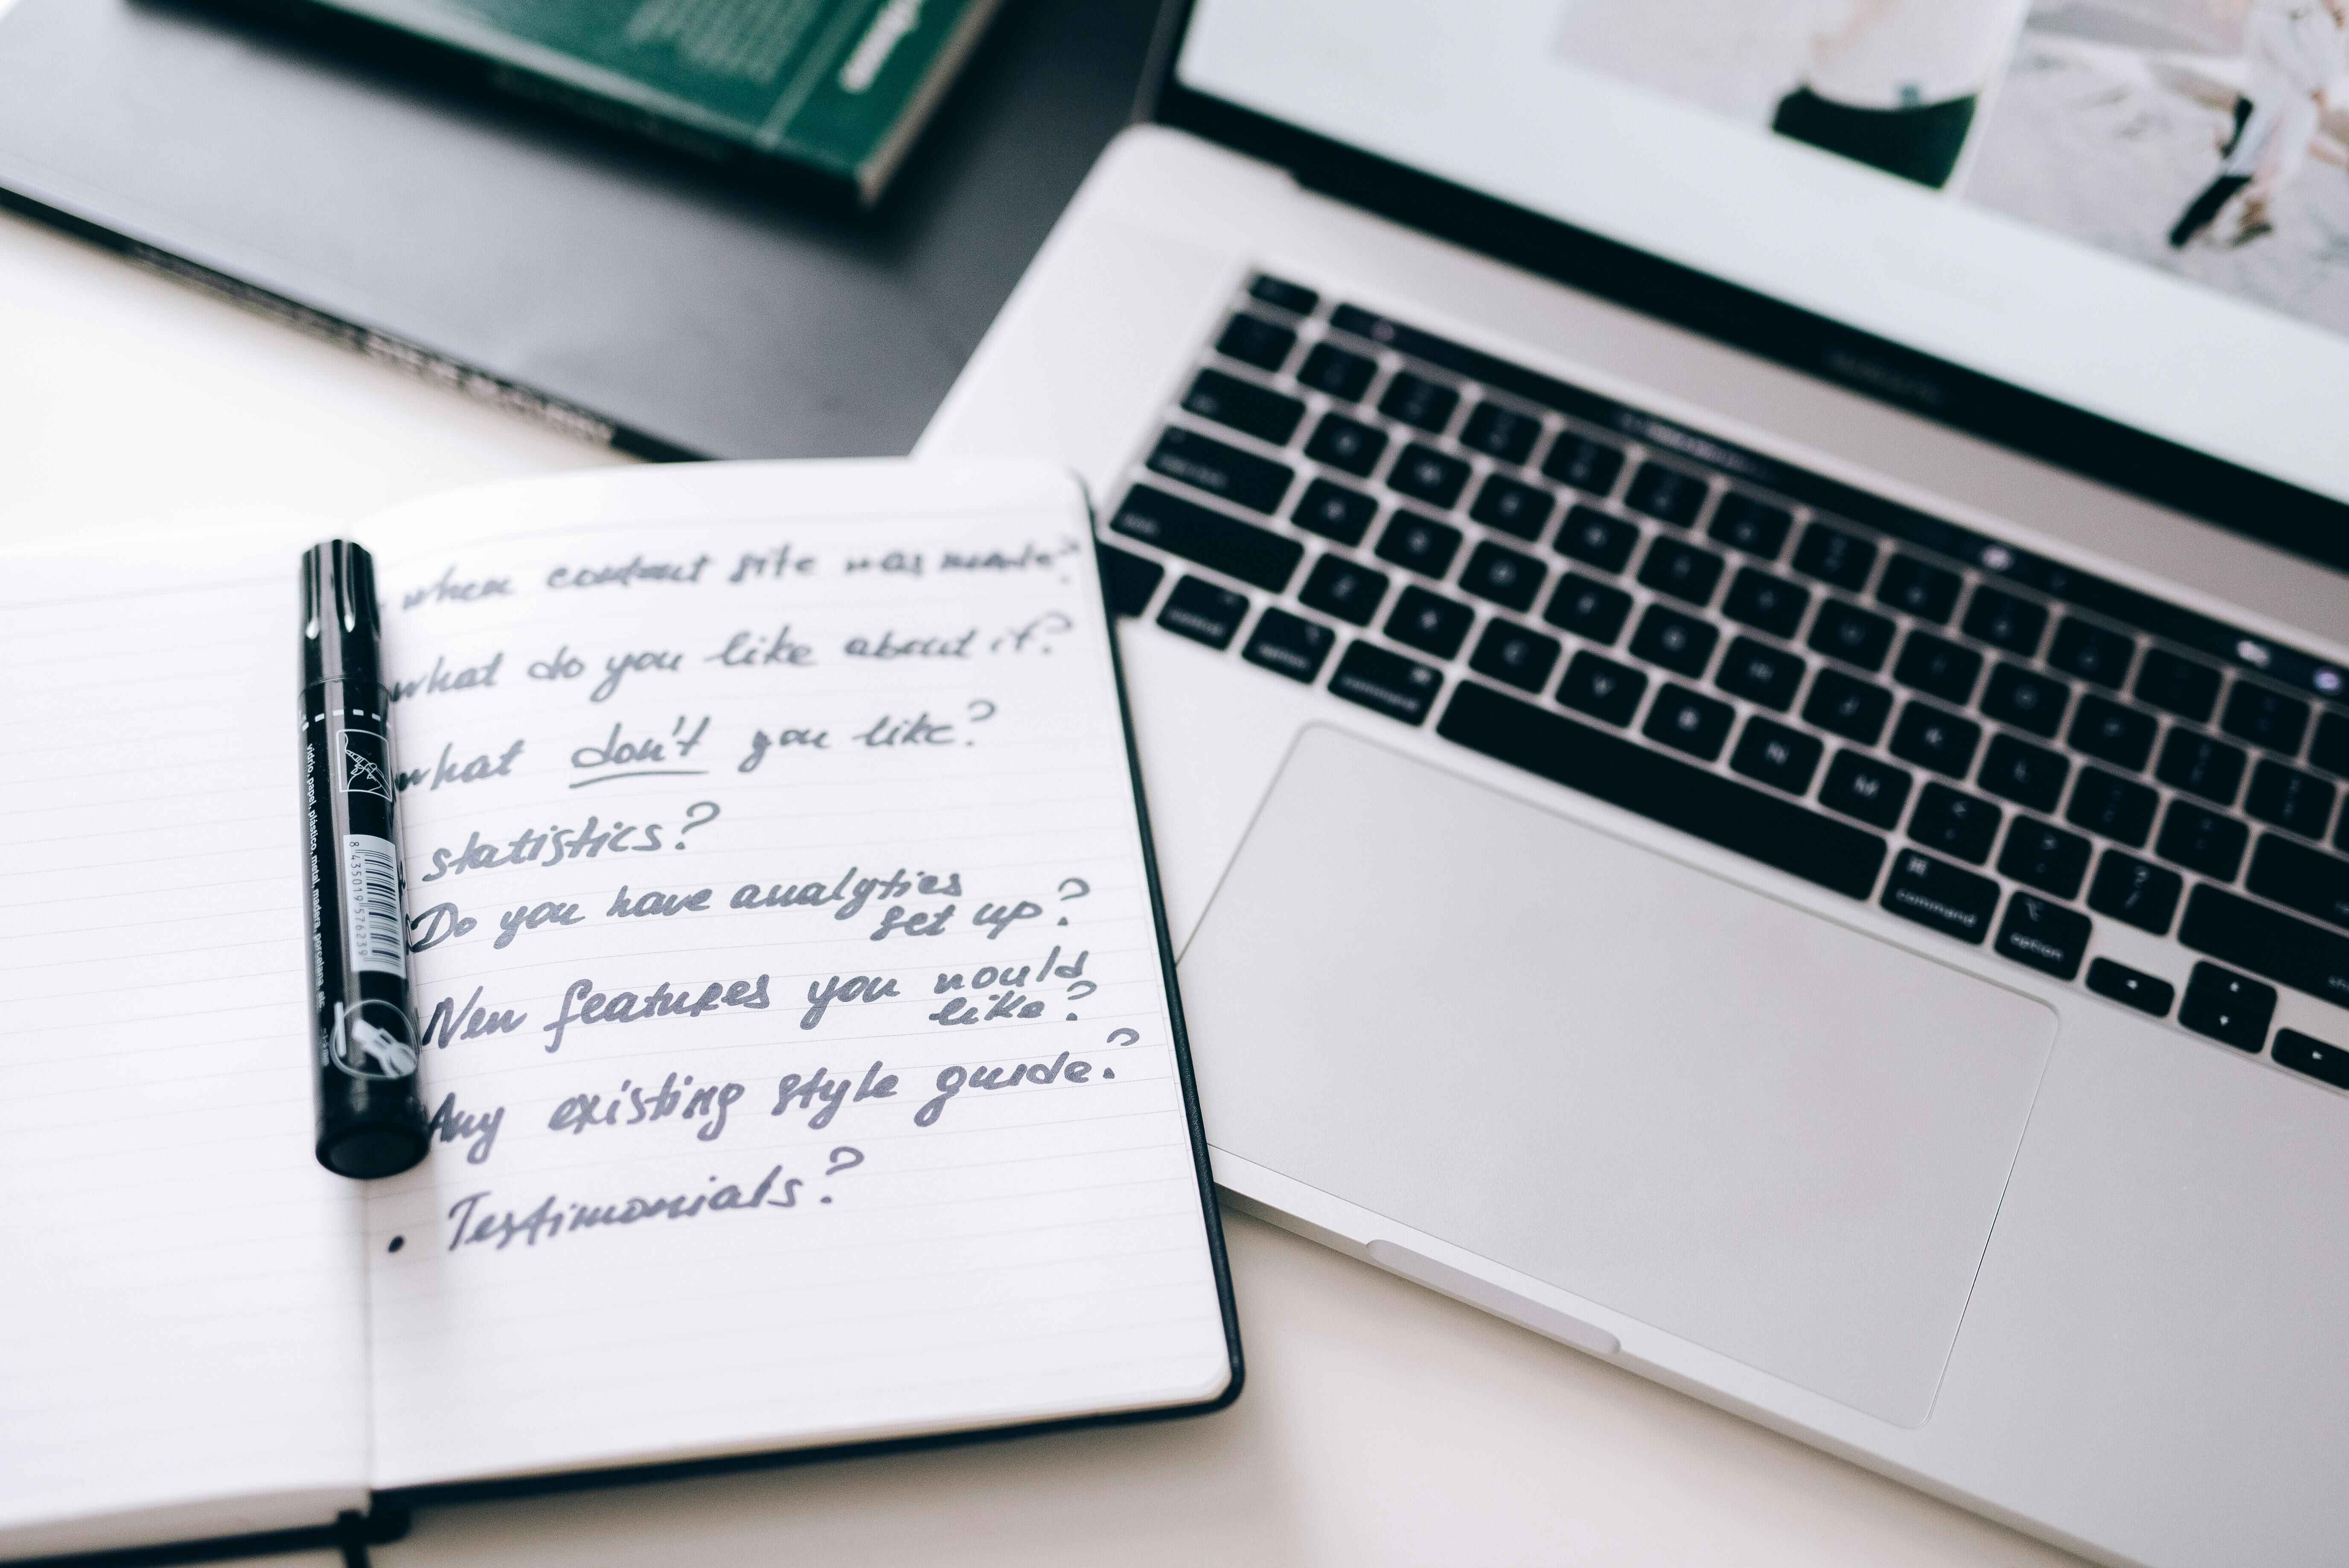 when content site was made?
what do you like about it?
what don't you like?
statistics?
Do you have analytics
set up?
New features you would
like?
Any existing style guide?
• Testimonials?
vidrio, papel, plástico, metal, madera, porcelana, etc
8 435019 576239
control
option
command
command
option